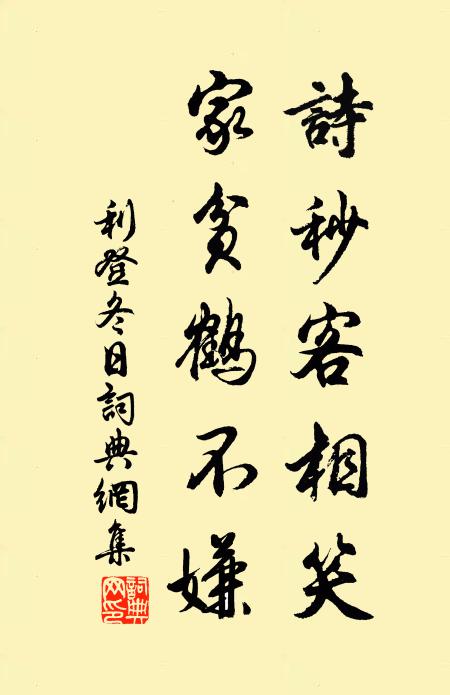 詩秒客相笑
家貧鶴不嫌
利登冬日詞典網集
詞典网印